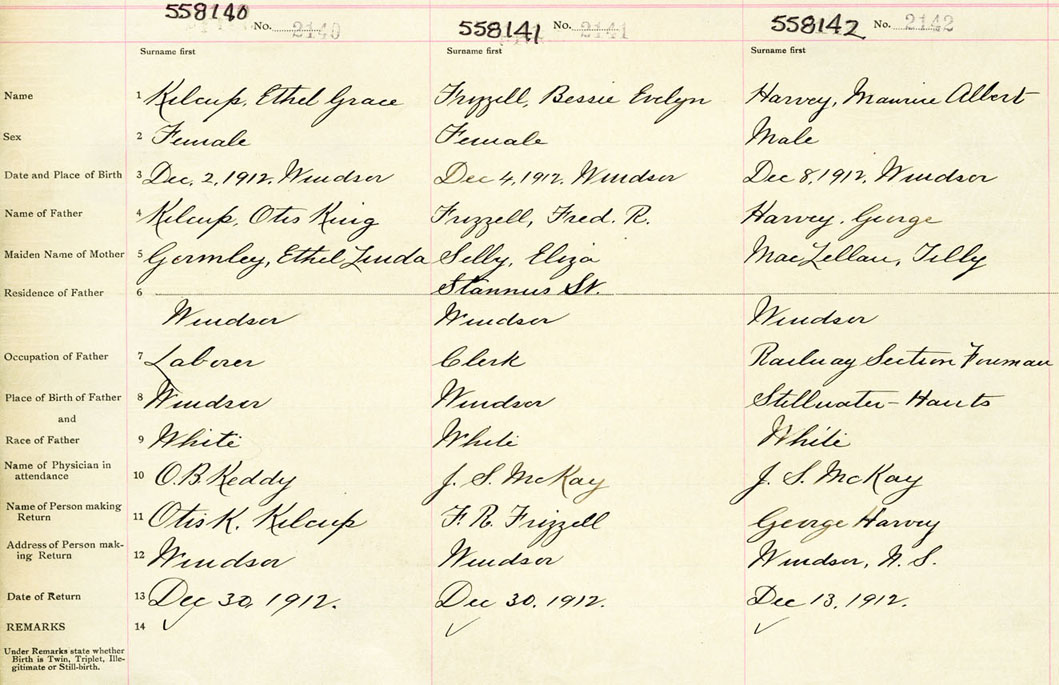 558140 No. 2140 558141 No. 2141 558142 No. 2142
Surname first Surname first Surname first
Name 1 Kilcup, Ethel Grace Frizzell, Bessie Evelyn Harvey, Maurice Albert
Sex 2 Female Female Male
Date and Place of Birth 3 Dec. 2, 1912. Windsor Dec 4, 1912. Windsor Dec 8, 1912, Windsor
Name of Father 4 Kilcup, Otis King Frizzell, Fred. R. Harvey, George
Maiden Name of Mother 5 Gormley, Ethel Linda Selly, Eliza MacLellan, Tilly
Stannus St.
Residence of Father 6
Windsor Windsor Windsor
Occupation of Father 7 Laborer Clerk Railway Section Foreman
Place of Birth of Father 8 Windsor Windsor Stillwater - Hants
and
Race of Father 9 White White White
Name of Physician in
attendance 10 O. B. Keddy J. S. McKay J. S. McKay
Name of Person making
Return 11 Otis K. Kilcup F. R. Frizzell George Harvey
Address of Person mak-
ing Return 12 Windsor Windsor Windsor, N. S.
Date of Return 13 Dec 30, 1912. Dec 30, 1912. Dec 13, 1912.
REMARKS 14 ✓ ✓ ✓
Under Remarks state whether
Birth is Twin, Triplet, Ille-
gitimate or Still-birth.